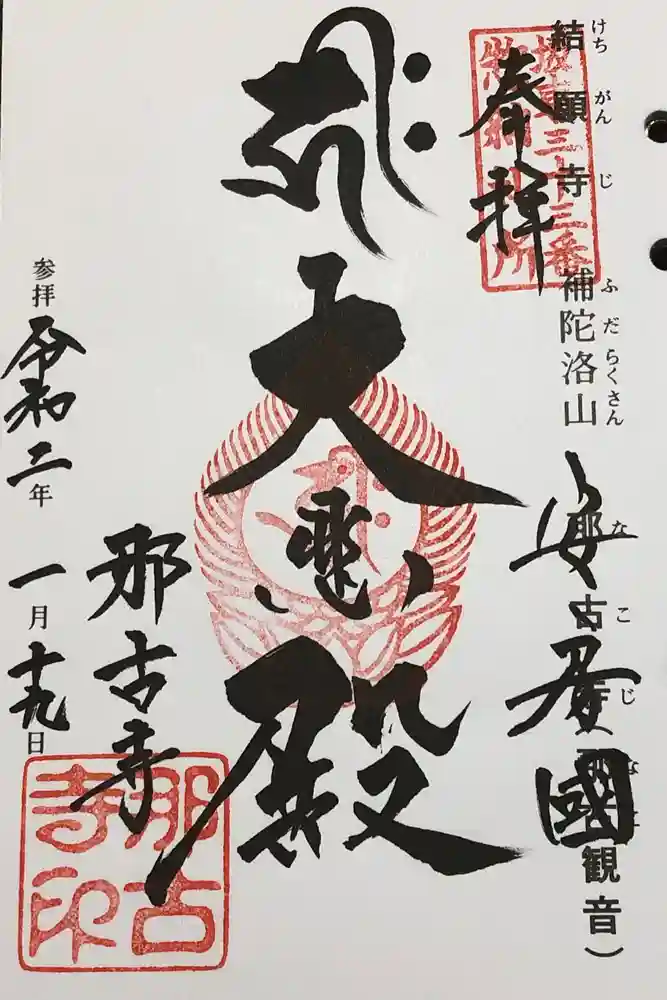 結願寺
けちがんじ
補陀洛山
ふだらくさん
那古寺（那古観音）
なこじ
なこ
坂東三十三番
札所
奉拝
安房國
大悲殿
那古寺
那古寺印
参拝 令和二年
一月十九日